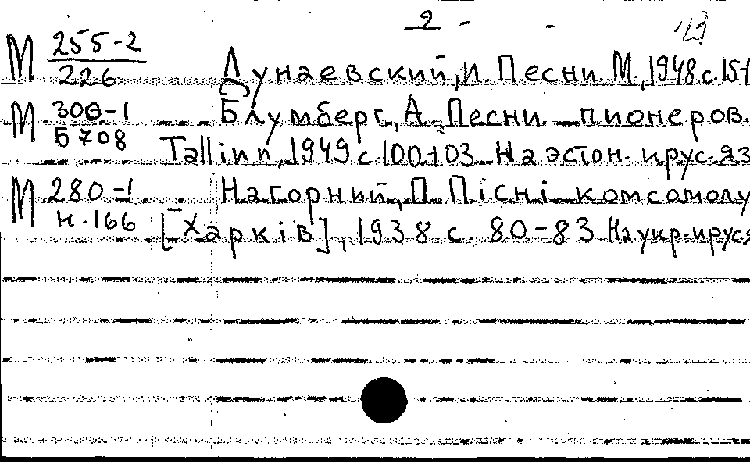 - 2 -
М 255-2 Дунаевский, И. Песни. М., 1948. с. 151
226
М 306-1 Блумберг, А. Песни пионеров.
Б 708 Tallinn, 1949 с 100-103. На эстон. и рус. яз
М 280-1 Нагорний, П. Пісні комсомолу
Н-166 [Харків], 1938 с. 80-83. На укр. и рус. я